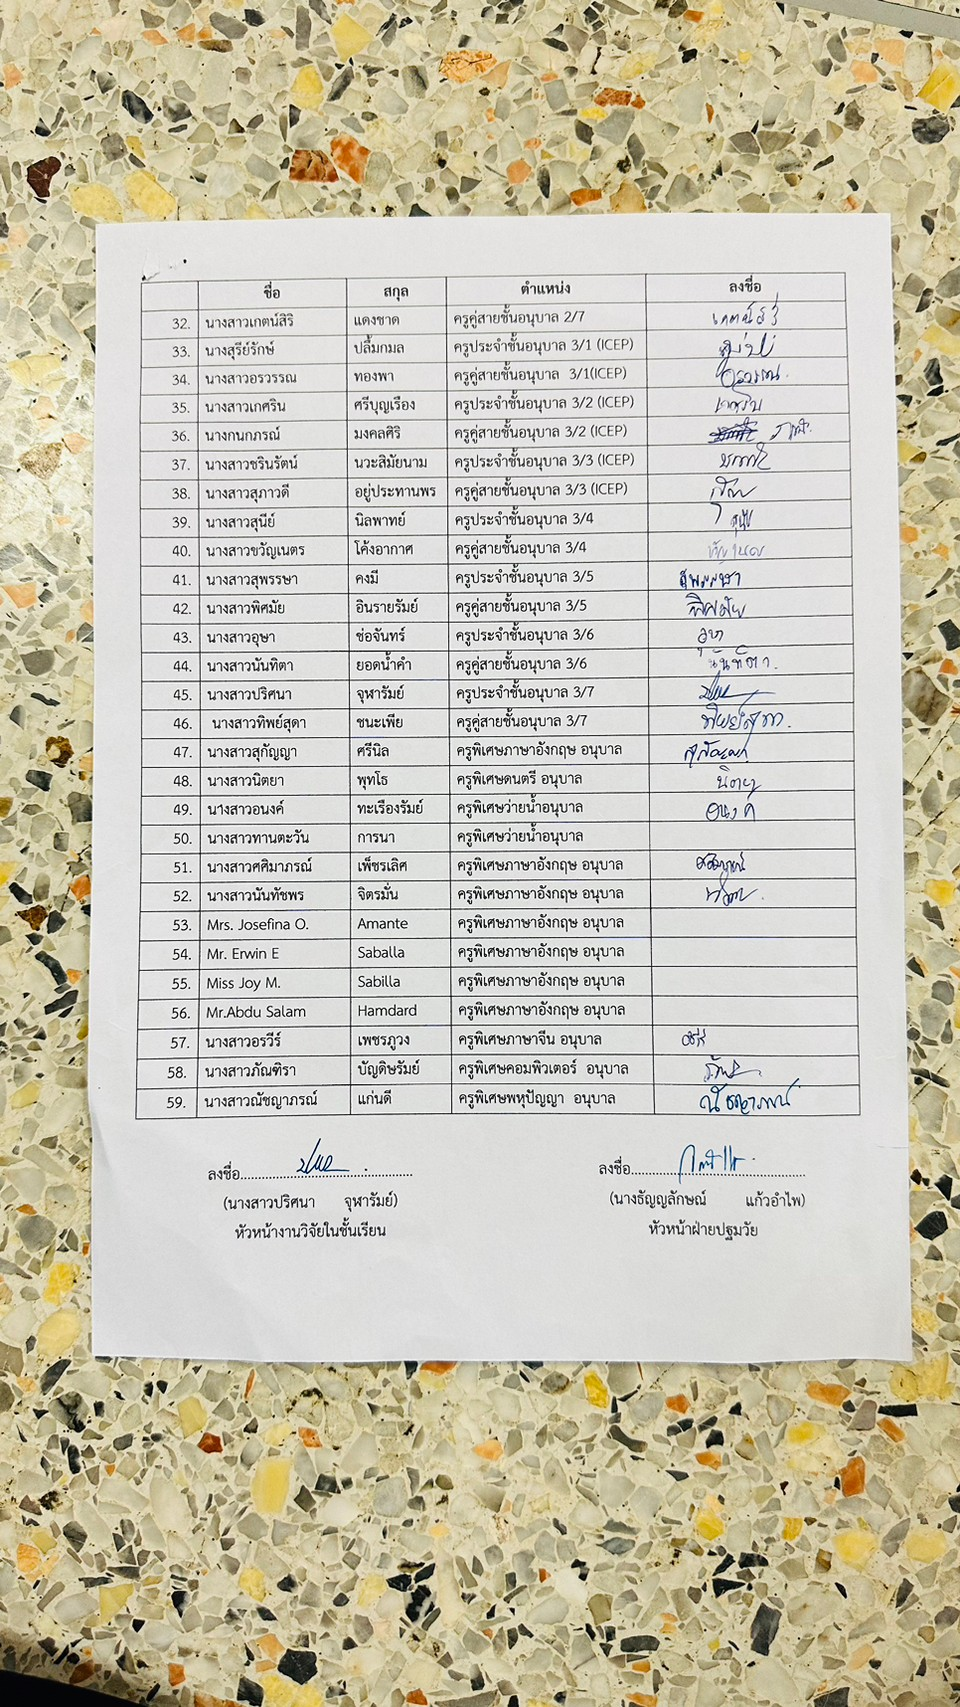 ชื่อ สกุล ตำแหน่ง ลงชื่อ
32. นางสาวเกตน์สิริ แดงชาด ครูคู่สายชั้นอนุบาล 2/7 เกตน์สิริ
33. นางสุรีย์รักษ์ ปลื้มกมล ครูประจำชั้นอนุบาล 3/1 (ICEP)
34. นางสาวอรวรรณ ทองพา ครูคู่สายชั้นอนุบาล 3/1(ICEP) อรวรรณ
35. นางสาวเกศริน ศรีบุญเรือง ครูประจำชั้นอนุบาล 3/2 (ICEP) เกศริน
36. นางกนกภรณ์ มงคลศิริ ครูคู่สายชั้นอนุบาล 3/2 (ICEP)
37. นางสาวชรินรัตน์ นวะสิมัยนาม ครูประจำชั้นอนุบาล 3/3 (ICEP)
38. นางสาวสุภาวดี อยู่ประทานพร ครูคู่สายชั้นอนุบาล 3/3 (ICEP)
39. นางสาวสุนีย์ นิลพาทย์ ครูประจำชั้นอนุบาล 3/4
40. นางสาวขวัญเนตร โค้งอากาศ ครูคู่สายชั้นอนุบาล 3/4
41. นางสาวสุพรรษา คงมี ครูประจำชั้นอนุบาล 3/5 สุพรรษา
42. นางสาวพิศมัย อินรายรัมย์ ครูคู่สายชั้นอนุบาล 3/5 พิศมัย
43. นางสาวอุษา ช่อจันทร์ ครูประจำชั้นอนุบาล 3/6 อุษา
44. นางสาวนันทิตา ยอดน้ำคำ ครูคู่สายชั้นอนุบาล 3/6 นันทิตา
45. นางสาวปริศนา จุฬารัมย์ ครูประจำชั้นอนุบาล 3/7
46. นางสาวทิพย์สุดา ชนะเพีย ครูคู่สายชั้นอนุบาล 3/7 ทิพย์สุดา
47. นางสาวสุกัญญา ศรีนิล ครูพิเศษภาษาอังกฤษ อนุบาล สุกัญญา
48. นางสาวนิตยา พุทโธ ครูพิเศษดนตรี อนุบาล นิตยา
49. นางสาวอนงค์ ทะเรืองรัมย์ ครูพิเศษว่ายน้ำอนุบาล อนงค์
50. นางสาวทานตะวัน การนา ครูพิเศษว่ายน้ำอนุบาล
51. นางสาวศศิมาภรณ์ เพ็ชรเลิศ ครูพิเศษภาษาอังกฤษ อนุบาล ศศิมาภรณ์
52. นางสาวนันทัชพร จิตรมั่น ครูพิเศษภาษาอังกฤษ อนุบาล
53. Mrs. Josefina O. Amante ครูพิเศษภาษาอังกฤษ อนุบาล
54. Mr. Erwin E Saballa ครูพิเศษภาษาอังกฤษ อนุบาล
55. Miss Joy M. Sabilla ครูพิเศษภาษาอังกฤษ อนุบาล
56. Mr.Abdu Salam Hamdard ครูพิเศษภาษาอังกฤษ อนุบาล
57. นางสาวอรวีร์ เพชรภูวง ครูพิเศษภาษาจีน อนุบาล อรวีร์
58. นางสาวภัณฑิรา บัญดิษรัมย์ ครูพิเศษคอมพิวเตอร์ อนุบาล
59. นางสาวณัชญาภรณ์ แก่นดี ครูพิเศษพหุปัญญา อนุบาล ณัชญาภรณ์
ลงชื่อ............................................ ลงชื่อ............................................
(นางสาวปริศนา จุฬารัมย์) (นางธัญญลักษณ์ แก้วอำไพ)
หัวหน้างานวิจัยในชั้นเรียน หัวหน้าฝ่ายปฐมวัย